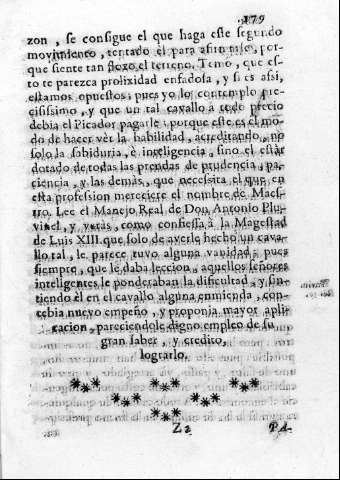 179
zon, se consigue el que haga este segundo
movimiento, tentado él para afirmarse, por-
que siente tan floxo el terreno. Temo, que es-
to te parezca prolixidad enfadosa, y si es assi,
estamos opuestos; pues yo lo contemplo pre-
cisissimo, y que un tal cavallo à todo precio
debia el Picador pagarle; porque este es el mo-
do de hacer vèr la habilidad, acreditando, no
solo la sabiduria, è inteligencia, sino el estàr
dotado de todas las prendas de prudencia, pa-
ciencia, y las demàs, que necessita el que en
esta profession mereciere el nombre de Maes-
tro. Lee el Manejo Real de Don Antonio Plu-
vinel, y veràs, como confiessa à la Magestad
de Luis XIII. que solo de averle hecho un cava-
llo tal, le parece tuvo alguna vanidad, pues
siempre, que le daba leccion, aquellos señores
inteligentes le ponderaban la dificultad, y sin-
tiendo él en el cavallo alguna enmienda, con-
cebia nuevo empeño, y proponia mayor apli-
cacion, pareciendole digno empleo de su
gran saber, y credito,
lograrlo.
Z2 PA-